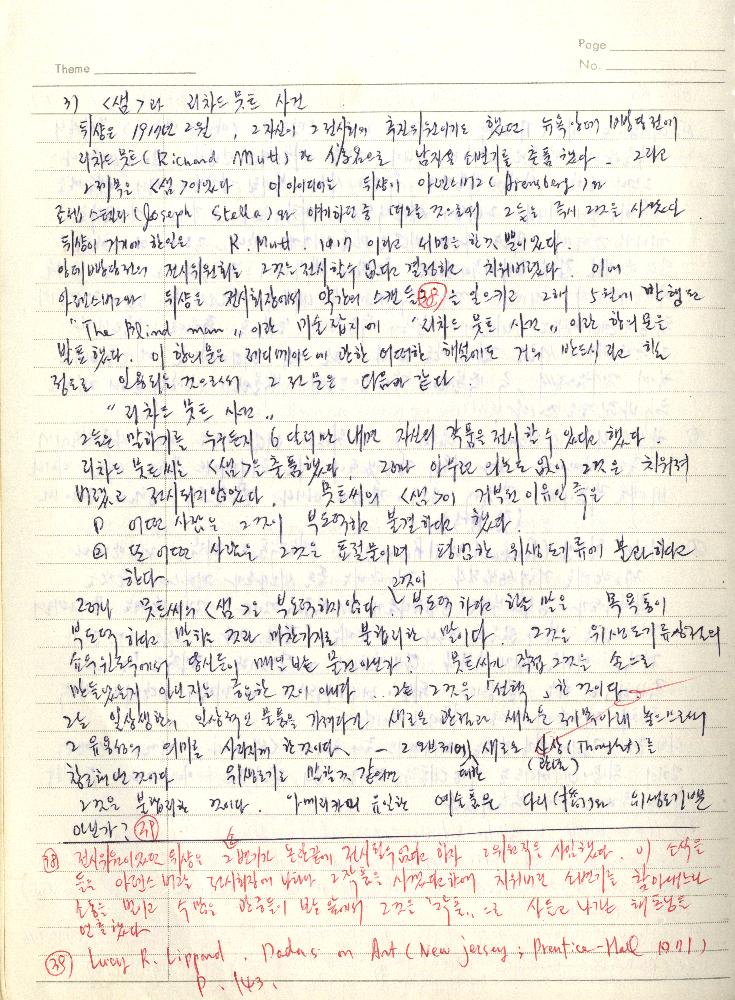 Page
Theme
No.
3) <샘>과 리차드 뭇트 사건
뒤샹은 1917년 2월, 그 자신이 그 전시회의 추진위원이기도 했던 뉴욕 앙데팡당전에
리차드 뭇트(Richard Mutt)란 사인으로 남자용 소변기를 출품했다. 그리고
그 제목은 <샘>이었다 이 아이디어는 뒤샹이 아렌스버그(Arensberg)와
조셉 스텔라(Joseph Stella)와 이야기하던 중 떠오른 것으로서 그들은 즉시 그것을 사왔다.
뒤샹이 거기에 한 일은 R. Mutt 1917 이라고 서명을 한 것 뿐이었다.
앙데팡당전의 전시위원회는 그것은 전시할 수 없다고 결정하고 치워버렸다 이에
아렌스버그와 뒤샹은 전시회장에서 약간의 스캔들 38 을 일으키고 그해 5월에 발행된
"The Blind man" 이란 미술잡지에 "리차드 뭇트 사건" 이란 항의문을
발표했다. 이 항의문은 레디메이드에 관한 어떠한 해설에도 거의 반드시라고 할
정도로 인용되는 것으로서 그 전문은 다음과 같다.
"리차드 뭇트 사건"
그들은 말하기를 누구든지 6달러만 내면 자신의 작품을 전시할 수 있다고 했다
리차드 뭇트씨는 <샘>을 출품했다. 그러나 아무런 의논도 없이 그것은 치워져
버렸고 전시되지 않았다. 뭇트씨의 <샘>이 거부된 이유인 즉은
① 어떤 사람은 그것이 부도덕하고 불결하다고 했다.
② 또 어떤 사람은 그것은 표절물이며 평범한 위생도기류에 불과하다고
한다.
그것이
그러나 뭇트씨의 <샘>은 부도덕하지 않다 부도덕하다고 하는 말은 목욕통이
부도덕하다고 말하는 것과 마찬가지로 불합리한 말이다. 그것은 위생도기류상점의
쇼윈도우에서 당신들이 매일 보는 물건이 아닌가. 뭇트씨가 직접 그것을 손으로
만들었는지 아닌지는 중요한 것이 아니다. 그는 그것을 「선택」한 것이다
그는 일상생활의 일상적인 물품을 가져다가 새로운 관점과 새로운 제목아래 놓으므로써
그 유용성의 의미를 사라지게 한 것이다 - 그 오브제에 새로운 사상(Thought)을
대한 (관념)
창조해낸 것이다 위생도기로 말할 것 같으면
그것은 불합리한 것이다. 아메리카의 유일한 예술품은 다리(橋)와 위생도기뿐
아닌가? 39
소
38 전시위원이었던 뒤샹은 그 변기가 논란끝에 전시될 수 없다고 하자 그 위원직을 사임했다. 이 소식을
들은 아렌스버그는 전시회장에 나타나 그 작품을 사겠다고 하여 치워버린 소변기를 찾아내느라
소동을 벌이고 수많은 관중들이 보는 앞에서 그것을 "작품"으로 사들고 나가는 해프닝을
연출했다
39 Lucy R. Lippard. Dadas on Art (New jersey; Prentice-Hall 1971)
P. 143.